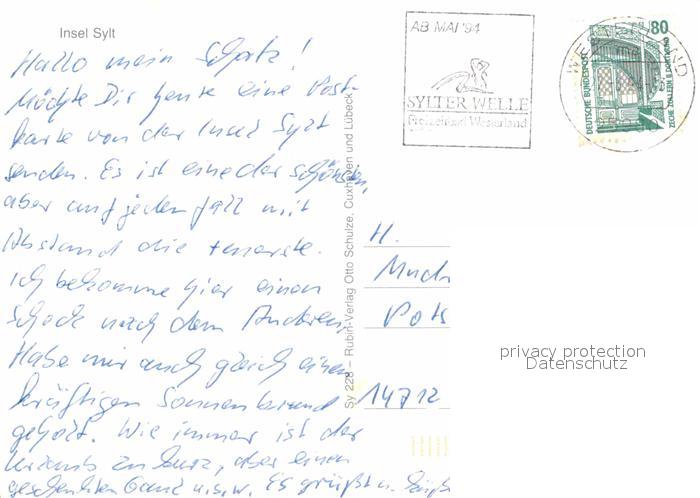 Insel Sylt
Hallo mein Schatz!
Möchte Dir heute eine Post-
karte von der Insel Sylt
senden. Es ist eine der schönsten,
aber auf jeden Fall mit
Abstand die teuerste.
Ich bekomme hier einen
Schock nach dem Anderen.
Habe mir auch gleich einen
kräftigen Sonnenbrand
geholt. Wie immer ist der
Urlaub zu kurz, aber einen
geschenkten Gaul u.s.w. Es grüßt u. küßt
Sy 228 – Rubin-Verlag Otto Schulze, Cuxhaven und Lübeck
AB MAI '94
SYLTER WELLE
Freizeitbad Westerland
80
DEUTSCHE BUNDESPOST
ZECHE ZOLLERN II, DORTMUND
H.
Pots
14712
privacy protection
Datenschutz